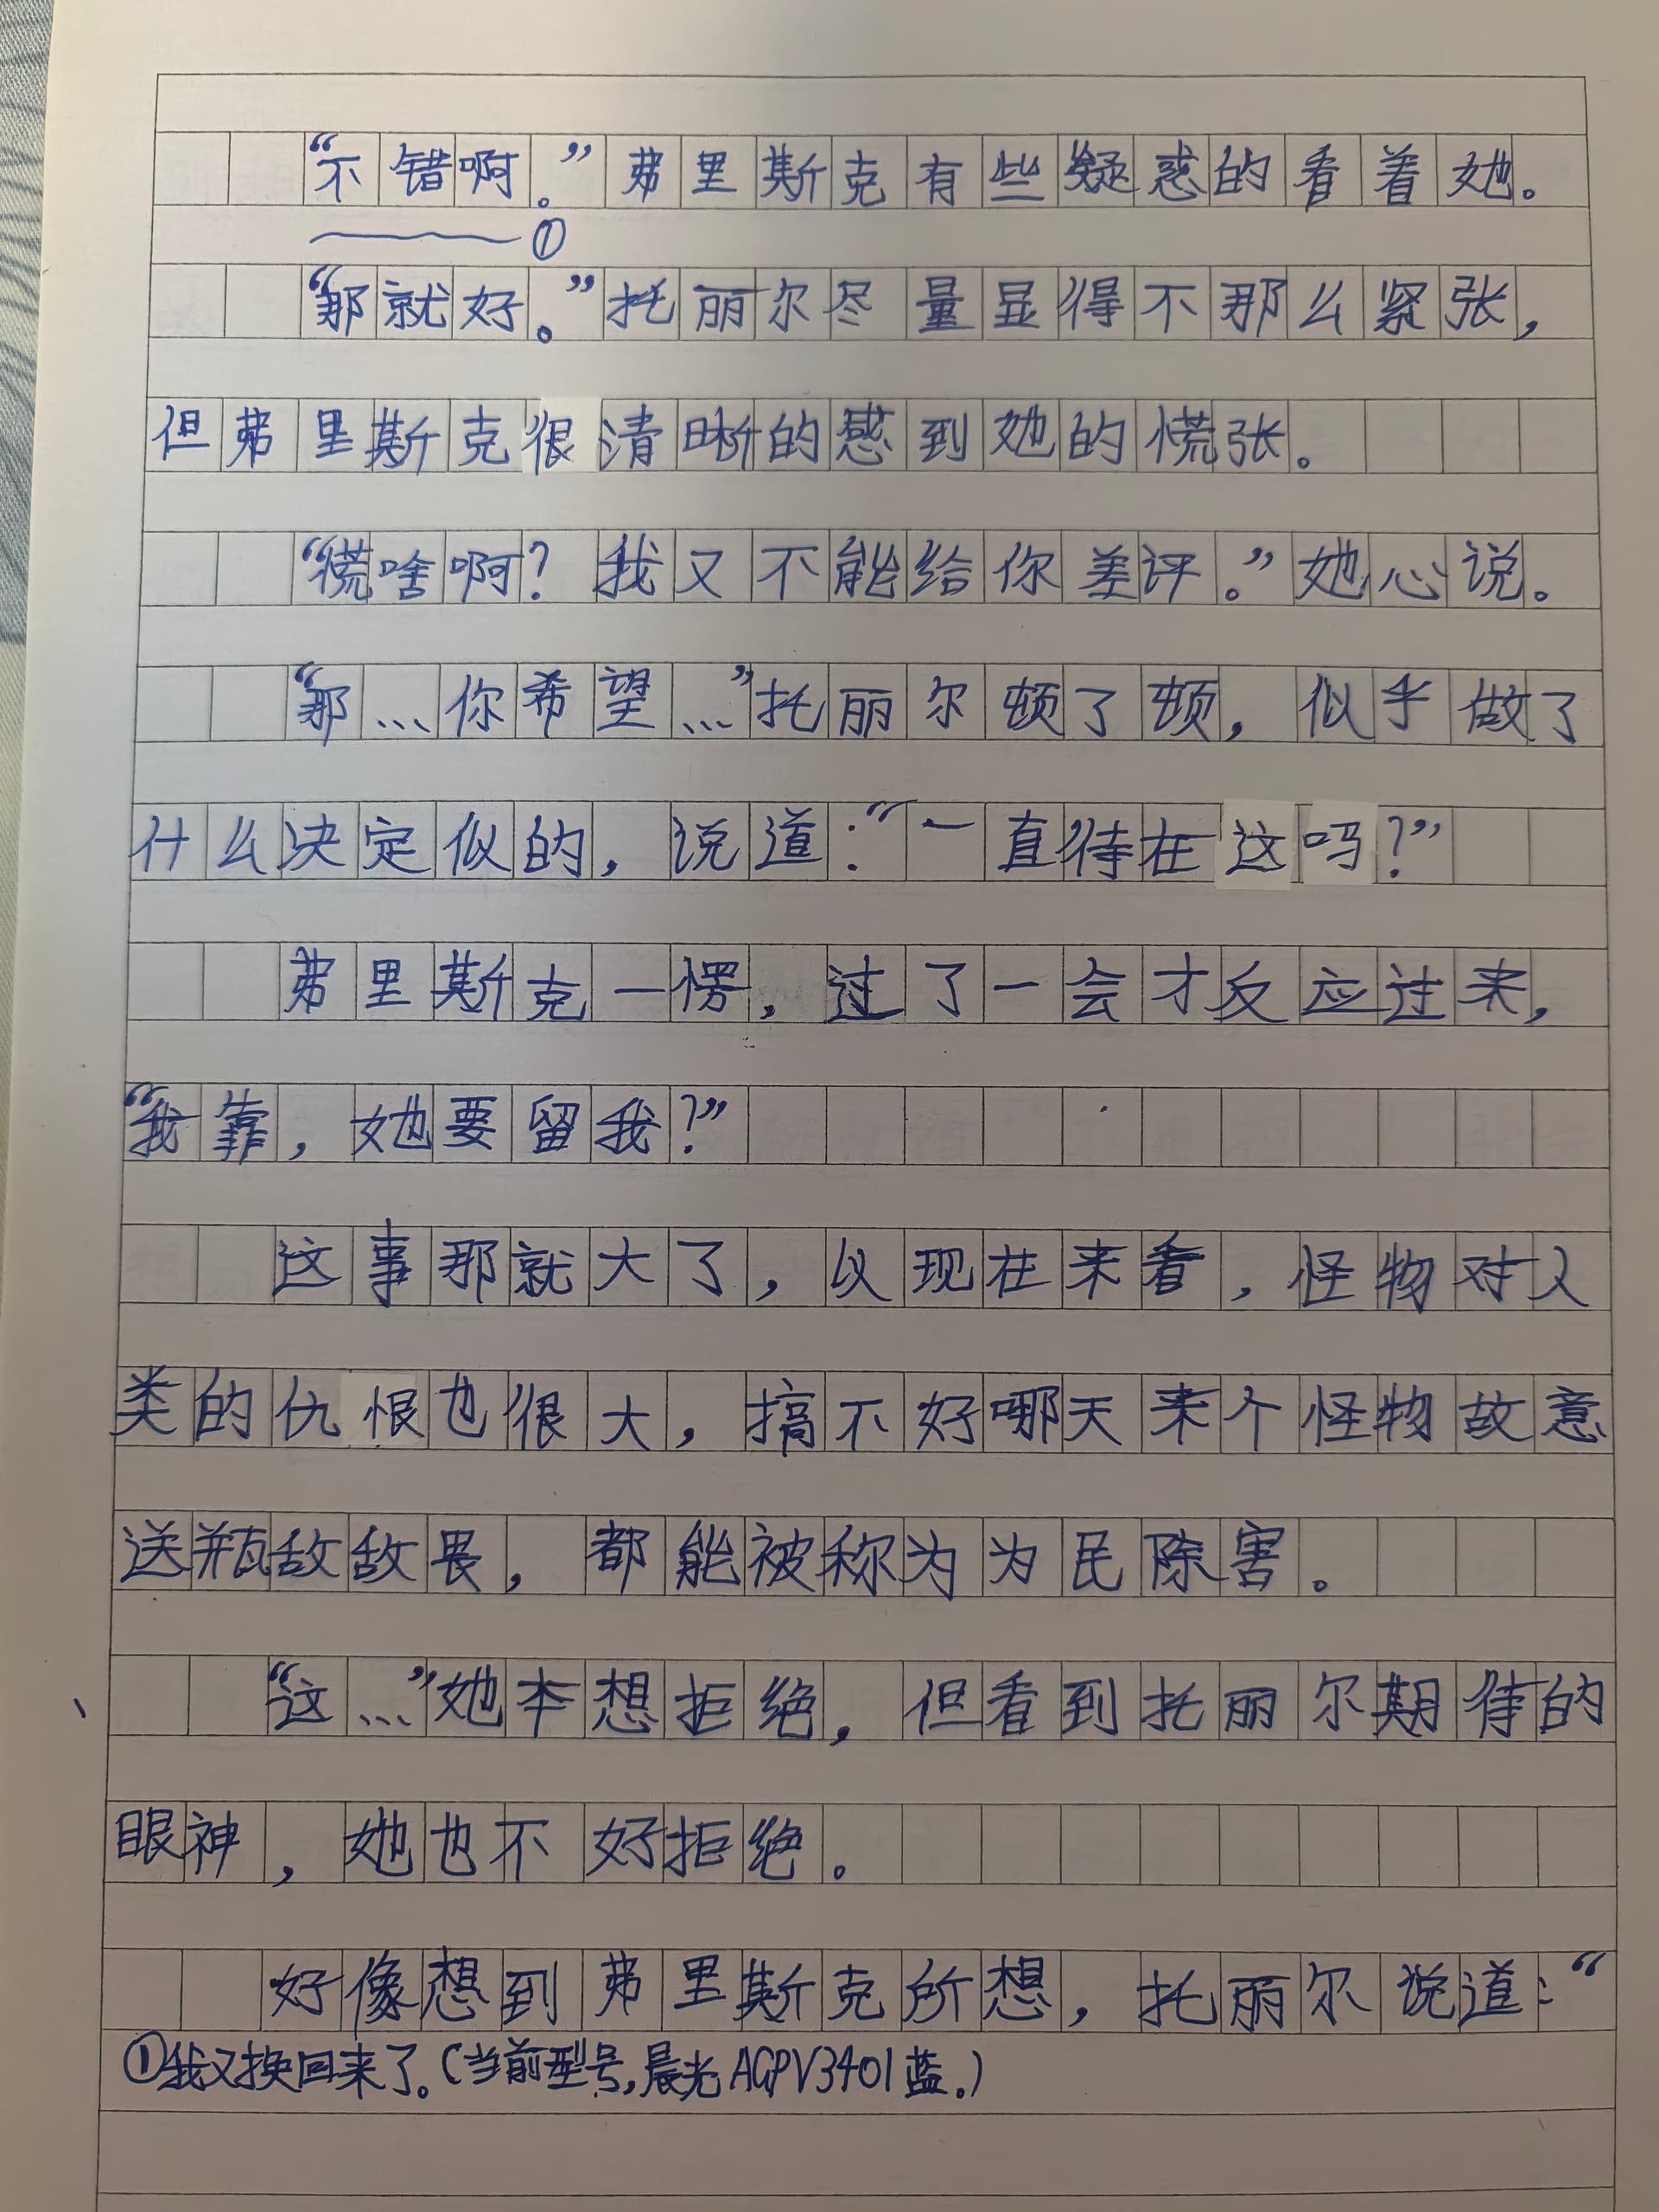 “不错啊。”弗里斯克有些疑惑的看着她。
①
“那就好。”托丽尔尽量显得不那么紧张，
但弗里斯克很清晰的感到她的慌张。
“慌啥啊？我又不能给你差评。”她心说。
“那…你希望…”托丽尔顿了顿，似乎做了
什么决定似的，说道：“一直待在这吗？”
弗里斯克一愣，过了一会才反应过来，
“我靠，她要留我？”
这事那就大了，以现在来看，怪物对人
类的仇恨也很大，搞不好哪天来个怪物故意
送瓶敌敌畏，都能被称为为民除害。
“这…”她本想拒绝，但看到托丽尔期待的
眼神，她也不好拒绝。
好像想到弗里斯克所想，托丽尔说道：“
①我又换回来了。（当前型号，晨光AGPV3401蓝。）